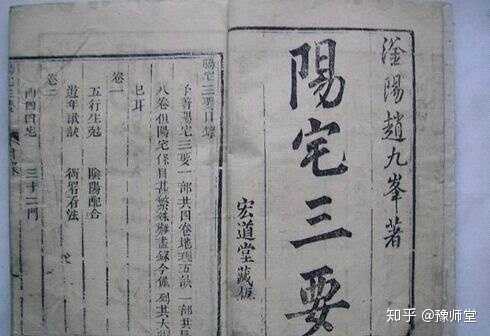 滏陽趙九峯著
陽宅三要
宏道堂藏板
陽宅三要目錄
予著陽宅三要一部共四卷地理五訣一部共
八卷但陽宅條目甚繁殊難盡錄今僅列其大
已耳
卷一
五行生剋 陰陽配合
遊年歌訣 衙署看法
卷二
四宅 三十二門
知乎 @豫师堂